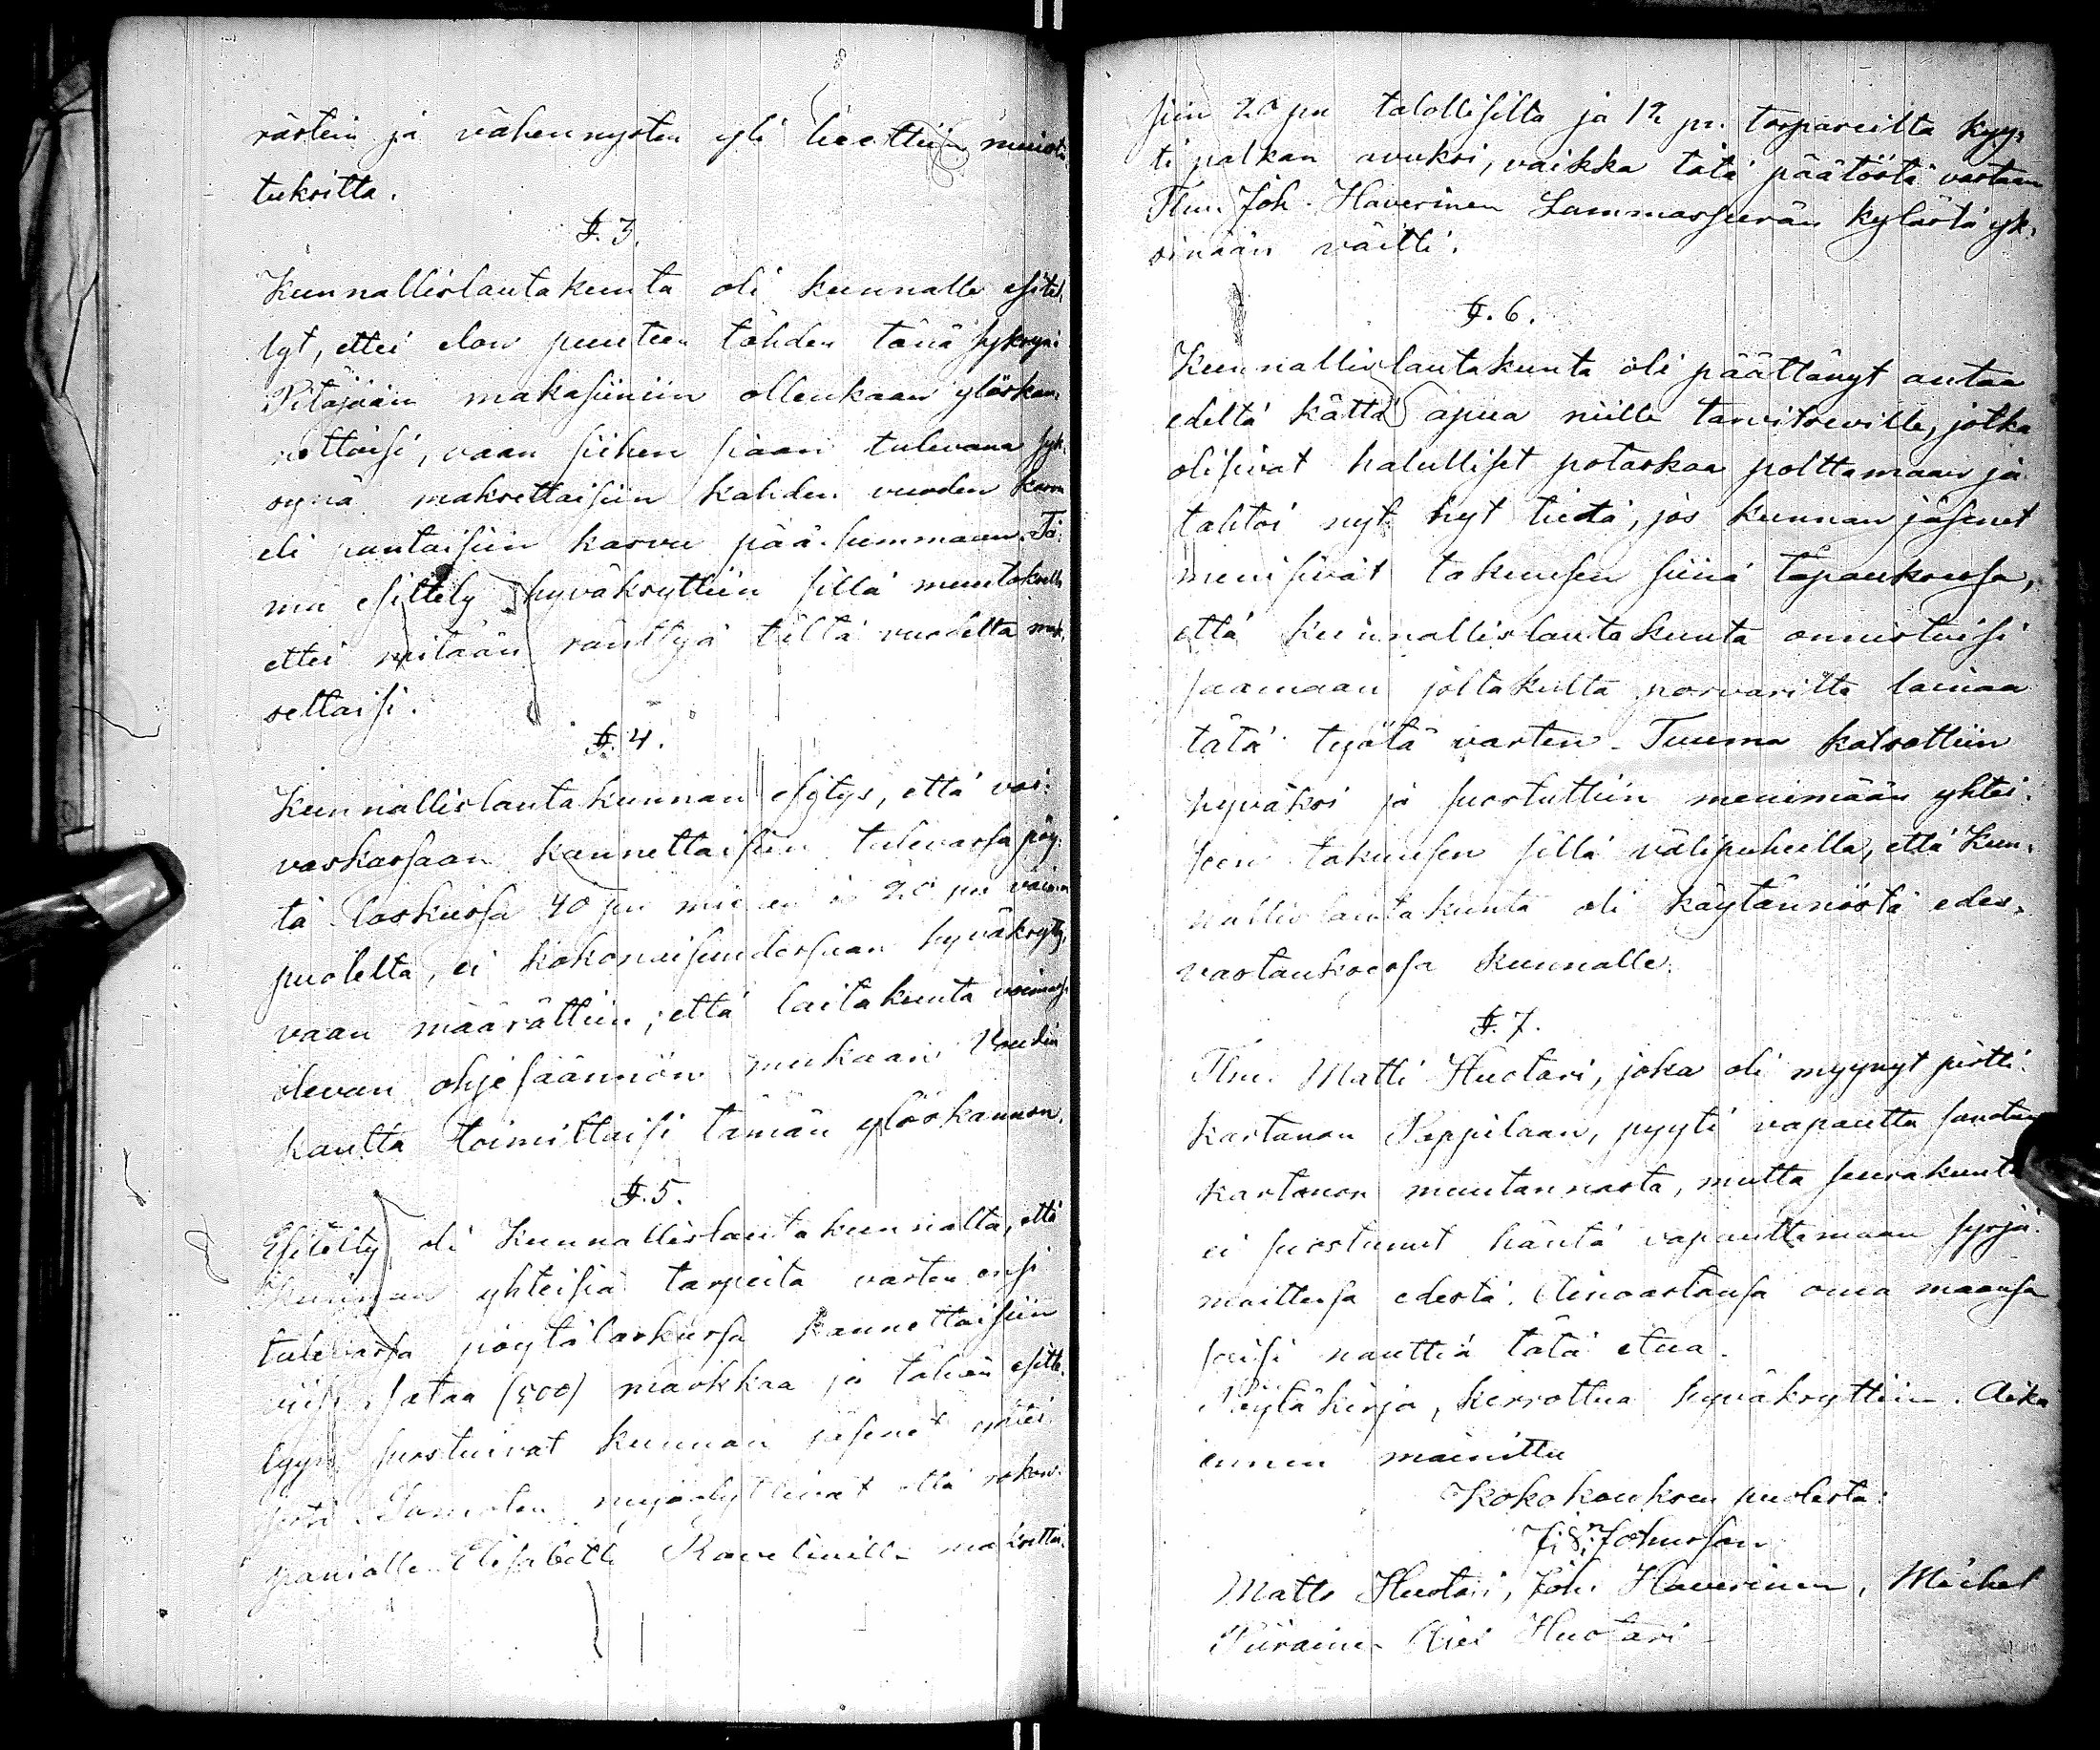 rästein ja vähennysten yli luettiin muistu-
tuksitta.
§. 3.
Kunnallislautakunta oli kunnalle esitel-
lyt, ettei elon puuteen tähden tänä syksynä
Pitäjään makasiiniin ollenkaan ylöskan-
nettaisi, vaan siihen siaan tulevana syk-
synä maksettaisiin kahden vuoden kasvu
eli pantaisiin kasvu pää-summaan. Tä-
mä esittely hyväksyttiin sillä muutoksella
ettei mitään ränttyä tältä vuodelta mak-
settaisi.
§. 4.
Kunnallislautakunnan esitys, että vai-
vaskassaan kannettaisiin tulevassa pöy-
tä laskussa 40 pn miehen ja 20 pn vaimon
puolelta, ei kokonaisuudessaan hyväksytty,
vaan määrättiin, että laitakunta voimassa
olevan ohjesäännön mukaan Voudin
kautta toimittaisi tämän ylöskannon.
§. 5.
Esitelty oli Kunnallislautakunnalta, että
Kunnan yhteisiä tarpeita varten ensi
tulevassa pöytälaskussa kannettaisiin
viisi sataa (500) markkaa ja tähän esitte-
lyyn suostuivat kunnan jäsenet yhtei-
sesti. Samoten myödyttivät että rokon-
paniälle Elisabeth Ravelinille maksettai-
siin 20 pn talollisilta ja 12 pn. torpareilta kyy-
ti palkan avuksi, vaikka tätä päätöstä vastaan
Thn. Joh. Haverinen Lammasperän kylästä yk-
sinään väitti.
§. 6.
Kunnallislautakunta oli päättänyt antaa
edeltä kättä apua niille tarvitseville, jotka
olisivat halulliset potaskaa polttamaan ja
tahtoi nyt kyt tietä, jos kunnan jäsenet
menisivät takuusen siinä tapauksessa,
että kunnallislautakunta onnistuisi
saamaan joltakulta porvarilta lainaa
tätä työtä varten. Tuuma katsottiin
hyväksi ja suostuttiin menimään yhtei-
seen takuusen sillä välipuheella, että Kun-
nallislautakunta oli käytännöstä edes-
vastauksessa kunnalle.
§. 7.
Thn. Matti Huotari, joka oli myynyt pirtti-
kartanon Peppilaan, pyyti vapautta sanotun
kartanon muutannasta, mutta seurakunta
ei suostunut häntä vapauttamaan syrjä-
maittensa edestä. Ainoastansa oma maansa
saisi nauttia tätä etua.
Pöytäkirja, kerrottua hyväksyttiin. Aika
ennen mainittu
Kokokouksen puolesta:
J. Johnsson
Matts Huotari, Joh. Haverinen, Michel
Piirainen Huotari